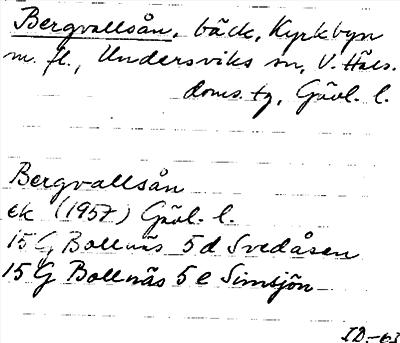 Bergvallsån, bäck, Kyrkbyn
m. fl., Undersviks sn, V. Häls.
doms. tg, Gävl. l.
Bergvallsån
ek (1957) Gävl. l.
15 G Bollnäs 5 d Svedåsen
15 G Bollnäs 5 e Simsjön
ID-63